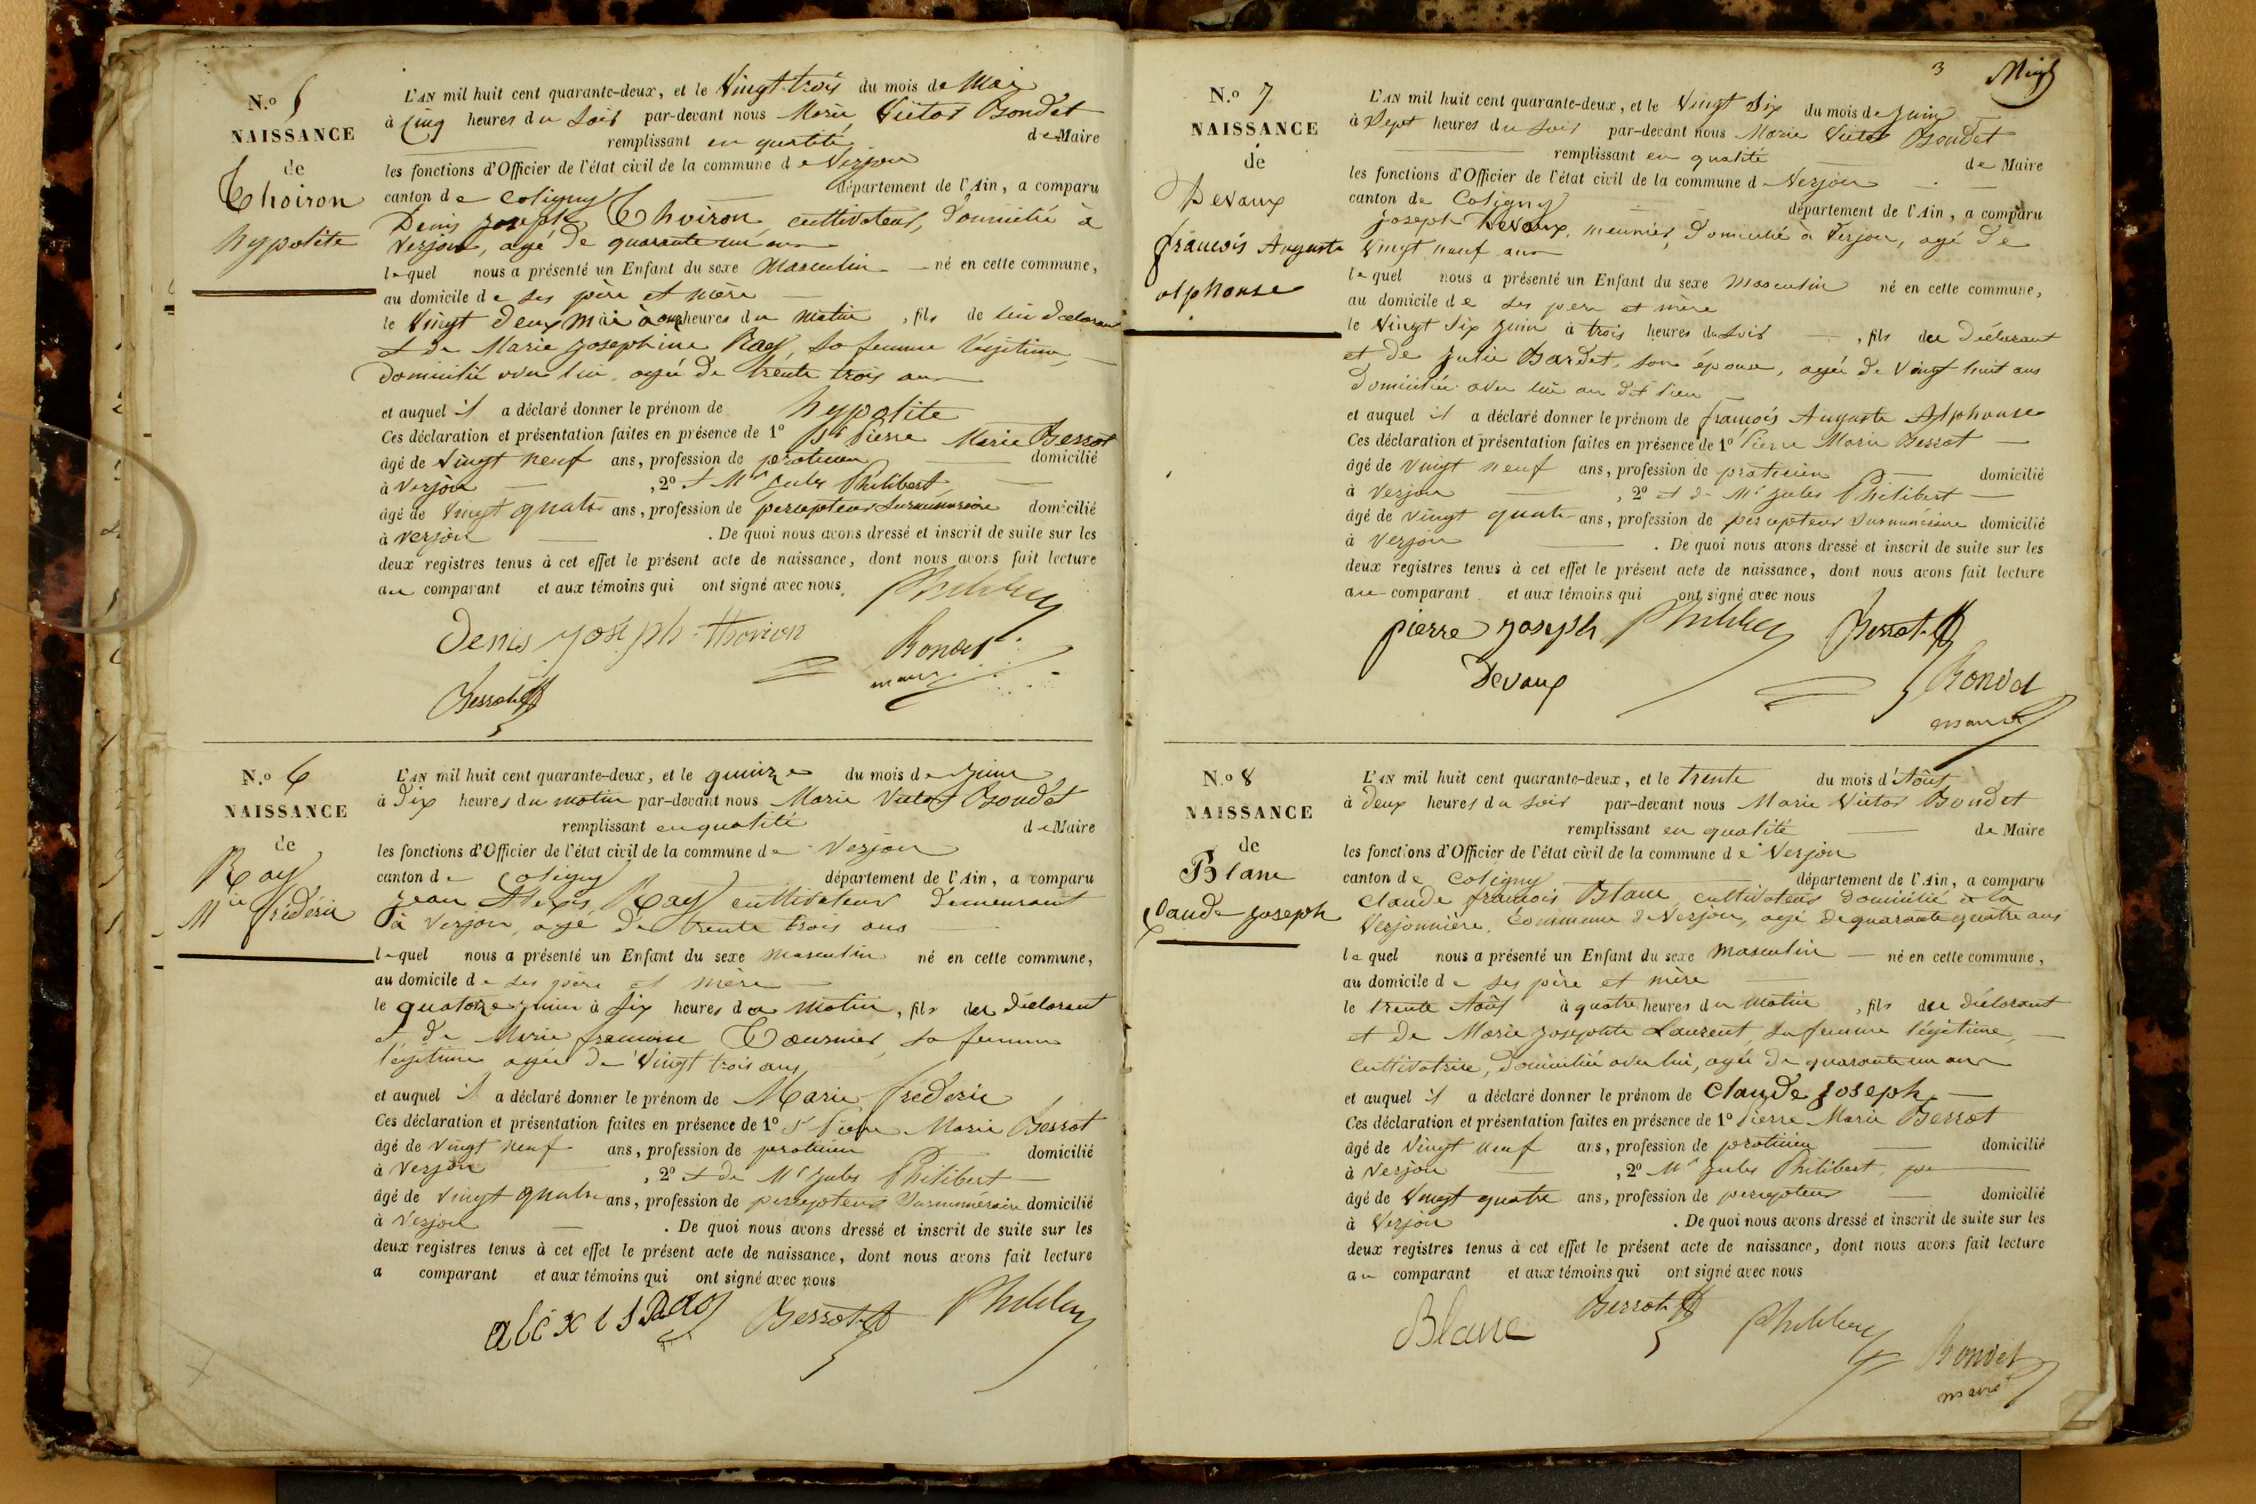 N.o 5
NAISSANCE
de
Thoiron
hypolite
L'AN mil huit cent quarante-deux, et le Vingt-trois du mois de Mai
à cinq heures du soir par-devant nous Marie Victor Bondet
remplissant en qualité de Maire
les fonctions d'Officier de l'état civil de la commune de Verjon
canton de Coligny département de l'Ain, a comparu
Denis Joseph Thoiron cultivateur, domicilié à
Verjon, agé de quarante un ans
lequel nous a présenté un Enfant du sexe Masculin né en cette commune,
au domicile de ses père et mère
le Vingt deux mai à onze heures du matin, fils de lui déclarant
et de Marie Josephine Ray, sa femme légitime,
domicilié avec lui, agée de trente trois ans
et auquel il a déclaré donner le prénom de hypolite
Ces déclaration et présentation faites en présence de 1º Sr Pierre Marie Berrot
âgé de Vingt neuf ans, profession de praticien domicilié
à Verjon, 2º et Mr Jules Philibert
âgé de Vingt quatre ans, profession de percepteur Surnuméraire domicilié
à Verjon. De quoi nous avons dressé et inscrit de suite sur les
deux registres tenus à cet effet le présent acte de naissance, dont nous avons fait lecture
au comparant et aux témoins qui ont signé avec nous.
Philibert
Denis joseph thoiron
Bondet
maire
Berrot
N.o 6
NAISSANCE
de
Ray
Mie frédéric
L'AN mil huit cent quarante-deux, et le quinze du mois de Juin
à dix heures du matin par-devant nous Marie Victor Bondet
remplissant en qualité de Maire
les fonctions d'Officier de l'état civil de la commune de Verjon
canton de Coligny département de l'Ain, a comparu
Jean Alexis Ray cultivateur demeurant
à Verjon, agé de trente trois ans
lequel nous a présenté un Enfant du sexe masculin né en cette commune,
au domicile de ses père et mère
le quatorze juin à six heures du matin, fils du déclarant
et de Marie françoise Tournier, sa femme
légitime agée de Vingt trois ans
et auquel il a déclaré donner le prénom de Marie Frédéric
Ces déclaration et présentation faites en présence de 1º Sr Pierre Marie Berrot
âgé de vingt neuf ans, profession de praticien domicilié
à Verjon, 2º et de Mr Jules Philibert
âgé de vingt quatre ans, profession de percepteur Surnuméraire domicilié
à Verjon. De quoi nous avons dressé et inscrit de suite sur les
deux registres tenus à cet effet le présent acte de naissance, dont nous avons fait lecture
a comparant et aux témoins qui ont signé avec nous
alexis Ray Berrot Philibert
3
N.o 7
NAISSANCE
de
Devaux
françois Auguste
alphonse
L'AN mil huit cent quarante-deux, et le Vingt Six du mois de Juin
à Sept heures du soir par-devant nous Marie Victor Bondet
remplissant en qualité de Maire
les fonctions d'Officier de l'état civil de la commune d Verjon
canton de Coligny département de l'Ain, a comparu
Joseph Devaux, meunier, domicilié à Verjon, agé de
Vingt neuf ans
lequel nous a présenté un Enfant du sexe Masculin né en cette commune,
au domicile de ses père et mère
le Vingt Six juin à trois heures du soir, fils du déclarant
et de Julie Bardet, son épouse, agée de vingt huit ans
domiciliée avec lui au dit lieu
et auquel il a déclaré donner le prénom de françois Auguste Alphonse
Ces déclaration et présentation faites en présence de 1º Pierre Marie Berrot
âgé de vingt neuf ans, profession de praticien domicilié
à Verjon, 2º et de Mr Jules Philibert
âgé de vingt quatre ans, profession de percepteur Surnuméraire domicilié
à Verjon. De quoi nous avons dressé et inscrit de suite sur les
deux registres tenus à cet effet le présent acte de naissance, dont nous avons fait lecture
au comparant et aux témoins qui ont signé avec nous
pierre joseph Philibert Berrot
Devaux
Bondet
maire
N.o 8
NAISSANCE
de
Blanc
Claude Joseph
L'AN mil huit cent quarante-deux, et le trente du mois d'Août
à deux heures du soir par-devant nous Marie Victor Bondet
remplissant en qualité de Maire
les fonctions d'Officier de l'état civil de la commune de Verjon
canton de Coligny département de l'Ain, a comparu
Claude françois Blanc, cultivateur domicilié à la
Verjonnière, Commune de Verjon, agé de quarante quatre ans
lequel nous a présenté un Enfant du sexe Masculin né en cette commune,
au domicile de ses père et mère
le trente Août à quatre heures du matin, fils du déclarant
et de Marie Josephte Laurent, sa femme légitime,
Cultivatrice, domiciliée avec lui, agée de quarante un ans
et auquel il a déclaré donner le prénom de Claude Joseph
Ces déclaration et présentation faites en présence de 1º Pierre Marie Berrot
âgé de Vingt neuf ans, profession de praticien domicilié
à Verjon, 2º Mr Jules Philibert,
âgé de Vingt quatre ans, profession de percepteur domicilié
à Verjon. De quoi nous avons dressé et inscrit de suite sur les
deux registres tenus à cet effet le présent acte de naissance, dont nous avons fait lecture
au comparant et aux témoins qui ont signé avec nous
Blanc Berrot Philibert
Bondet
maire